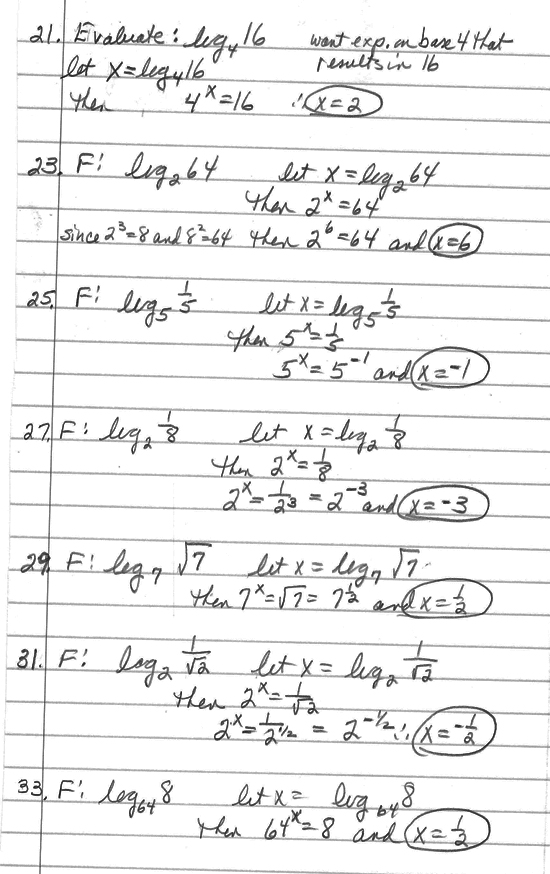 21. Evaluate: log₄16 want exp. on base 4 that
let x=log₄16 results in 16
then 4ˣ=16 ∴ x=2
23. F: log₂64 let x=log₂64
then 2ˣ=64
since 2³=8 and 8²=64 then 2⁶=64 and x=6
25. F: log₅ 1/5 let x=log₅ 1/5
then 5ˣ=1/5
5ˣ=5⁻¹ and x=-1
27. F: log₂ 1/8 let x=log₂ 1/8
then 2ˣ=1/8
2ˣ=1/2³=2⁻³ and x=-3
29. F: log₇ √7 let x=log₇ √7
then 7ˣ=√7=7^½ and x=1/2
31. F: log₂ 1/√2 let x=log₂ 1/√2
then 2ˣ=1/√2
2ˣ=1/2^1/2 = 2^-1/2 ∴ x=-1/2
33. F: log₆₄8 let x= log₆₄8
then 64ˣ=8 and x=1/2